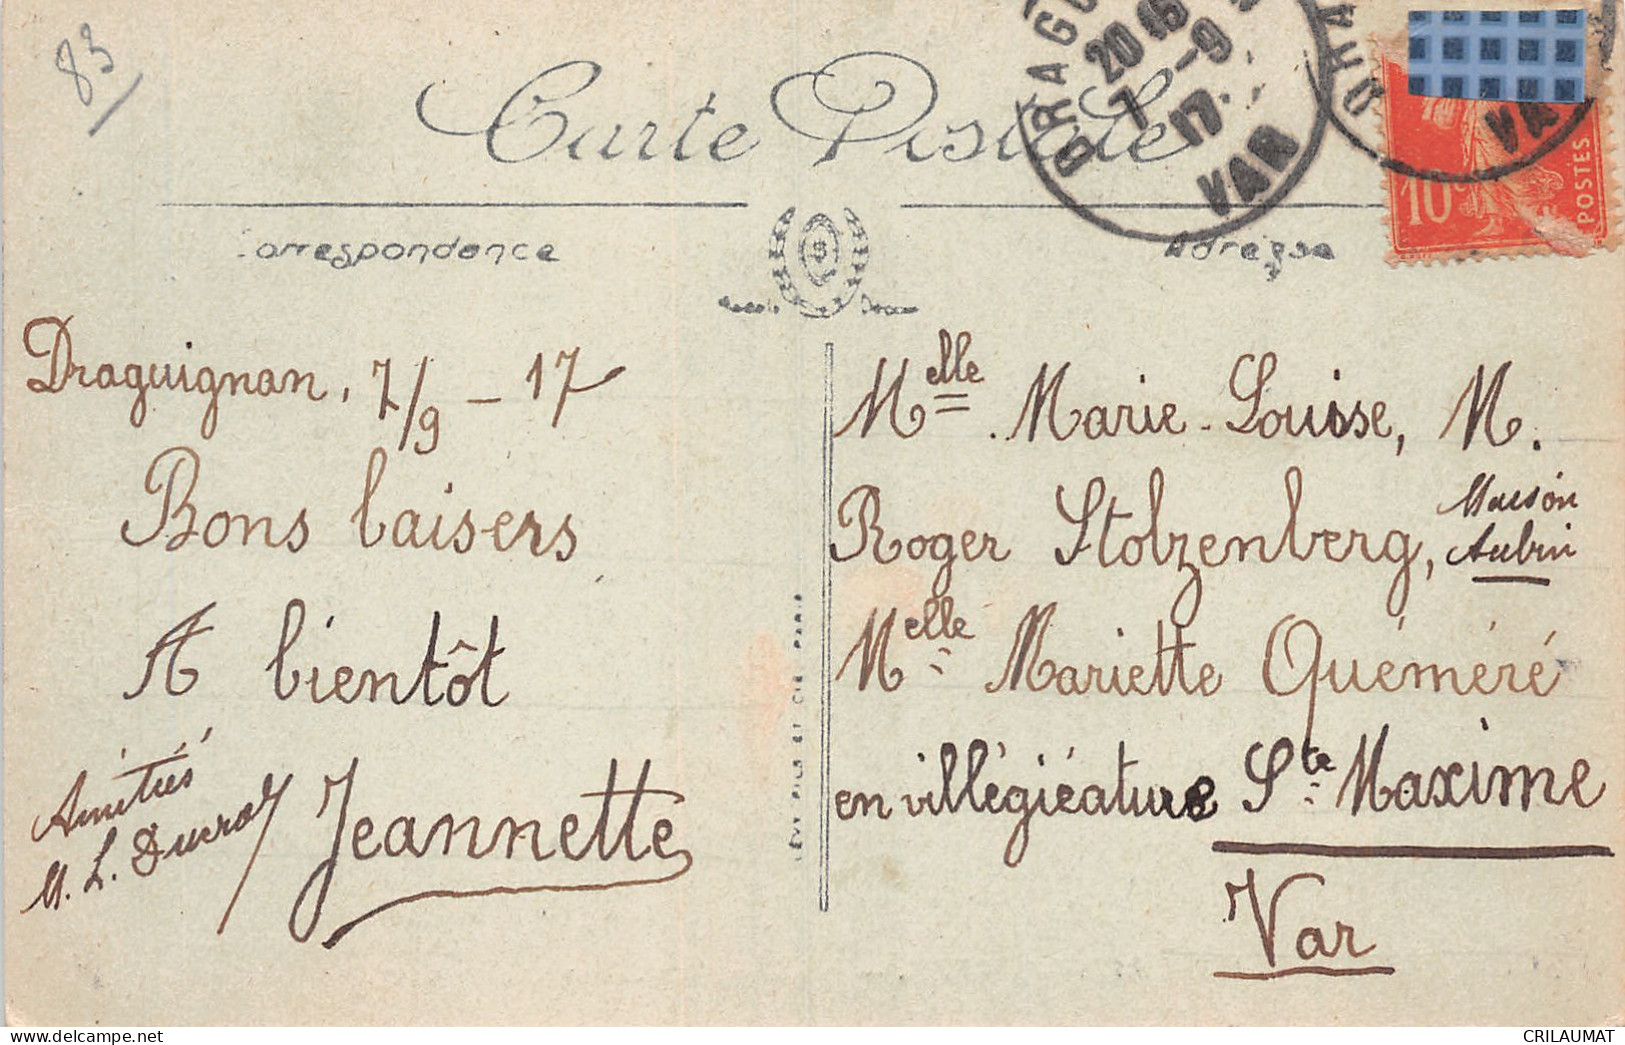 83
Carte Postale
DRAGU
20 15
7 -9
17
VAR
VAR
10c
POSTES
Correspondence
Adresse
Draguignan, 7/9 - 17
Bons baisers
A bientôt
Amitiés
M. L. Ducros
Jeannette
Melle Marie-Louisse, M.
Roger Stolzenberg, Maison
Aubin
Melle Mariette Quéméré
en villégiéature Ste Maxime
Var
LEVY FILS ET CIE PARIS
delcampe.net
CRILAUMAT